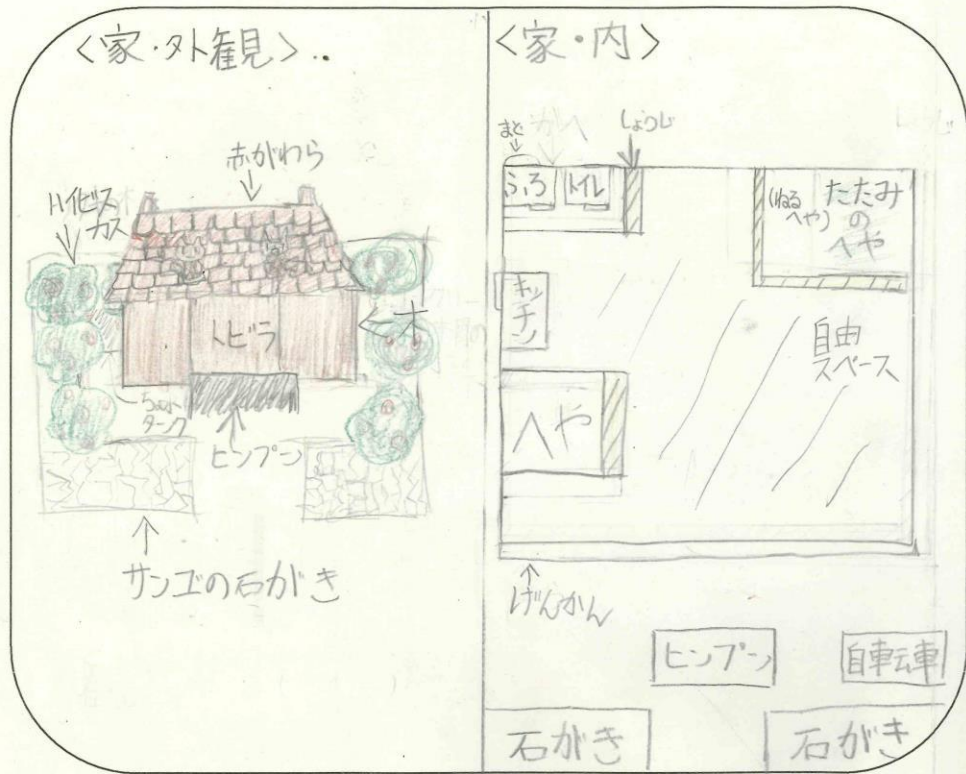 <家・外観>..
赤がわら
ハイビス
カス
トビラ
木
ちょ水
タンク
ヒンプン
サンゴの石がき
<家・内>
まど
かべ
しょうじ
ふろ
トイレ
(ねる
へや)
たたみ
の
へや
キッチン
自由
スペース
へや
げんかん
ヒンプン
自転車
石がき
石がき